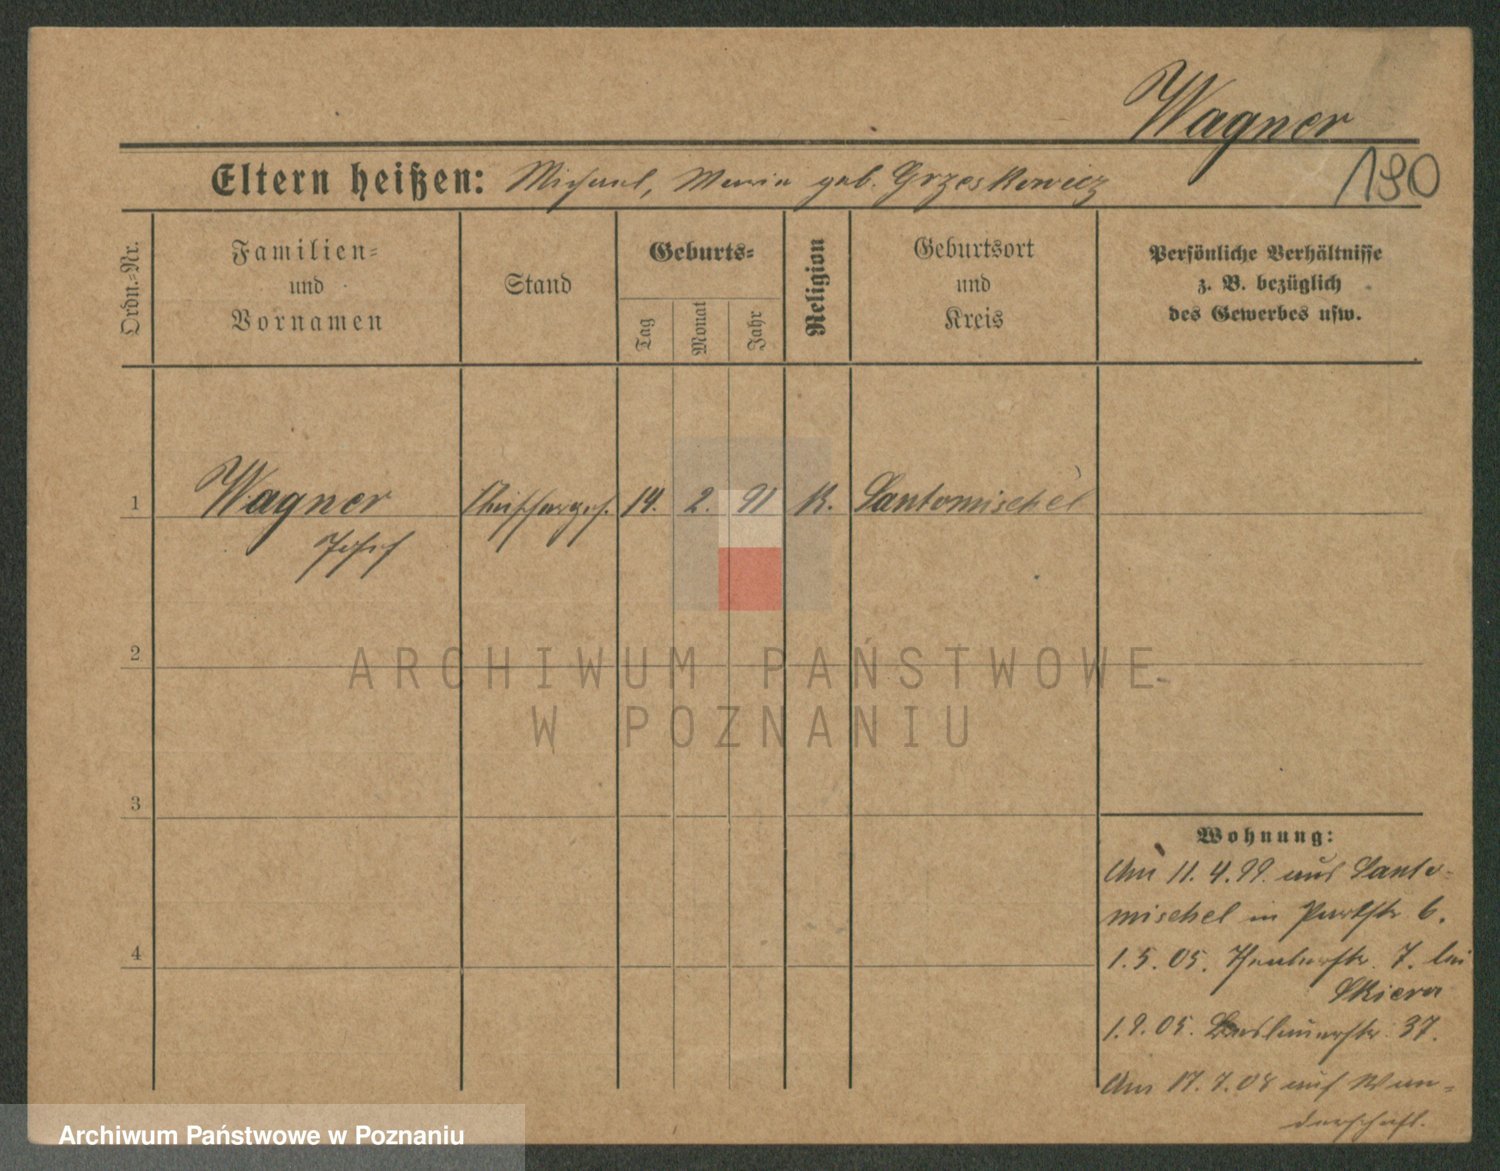 Wagner
190
Eltern heißen: Michael, Maria geb. Grzeskowicz
Ordn.-Nr.
Familien-
und
Vornamen
Stand
Geburts-
Tag
Monat
Jahr
Religion
Geburtsort
und
Kreis
Persönliche Verhältnisse
z. B. bezüglich
des Gewerbes usw.
1 Wagner 14. 2. 91 K. Santomischel
Josef
2
3
4
Wohnung:
Am 11. 4. 99. aus Santo-
mischel in Parkstr 6.
1. 5. 05. Theaterstr. 7. bei
Skiera
1. 9. 05. Breslauerstr. 37.
Am 17. 7. 08 auf Wan-
derschaft.
ARCHIWUM PAŃSTWOWE
W POZNANIU
Archiwum Państwowe w Poznaniu